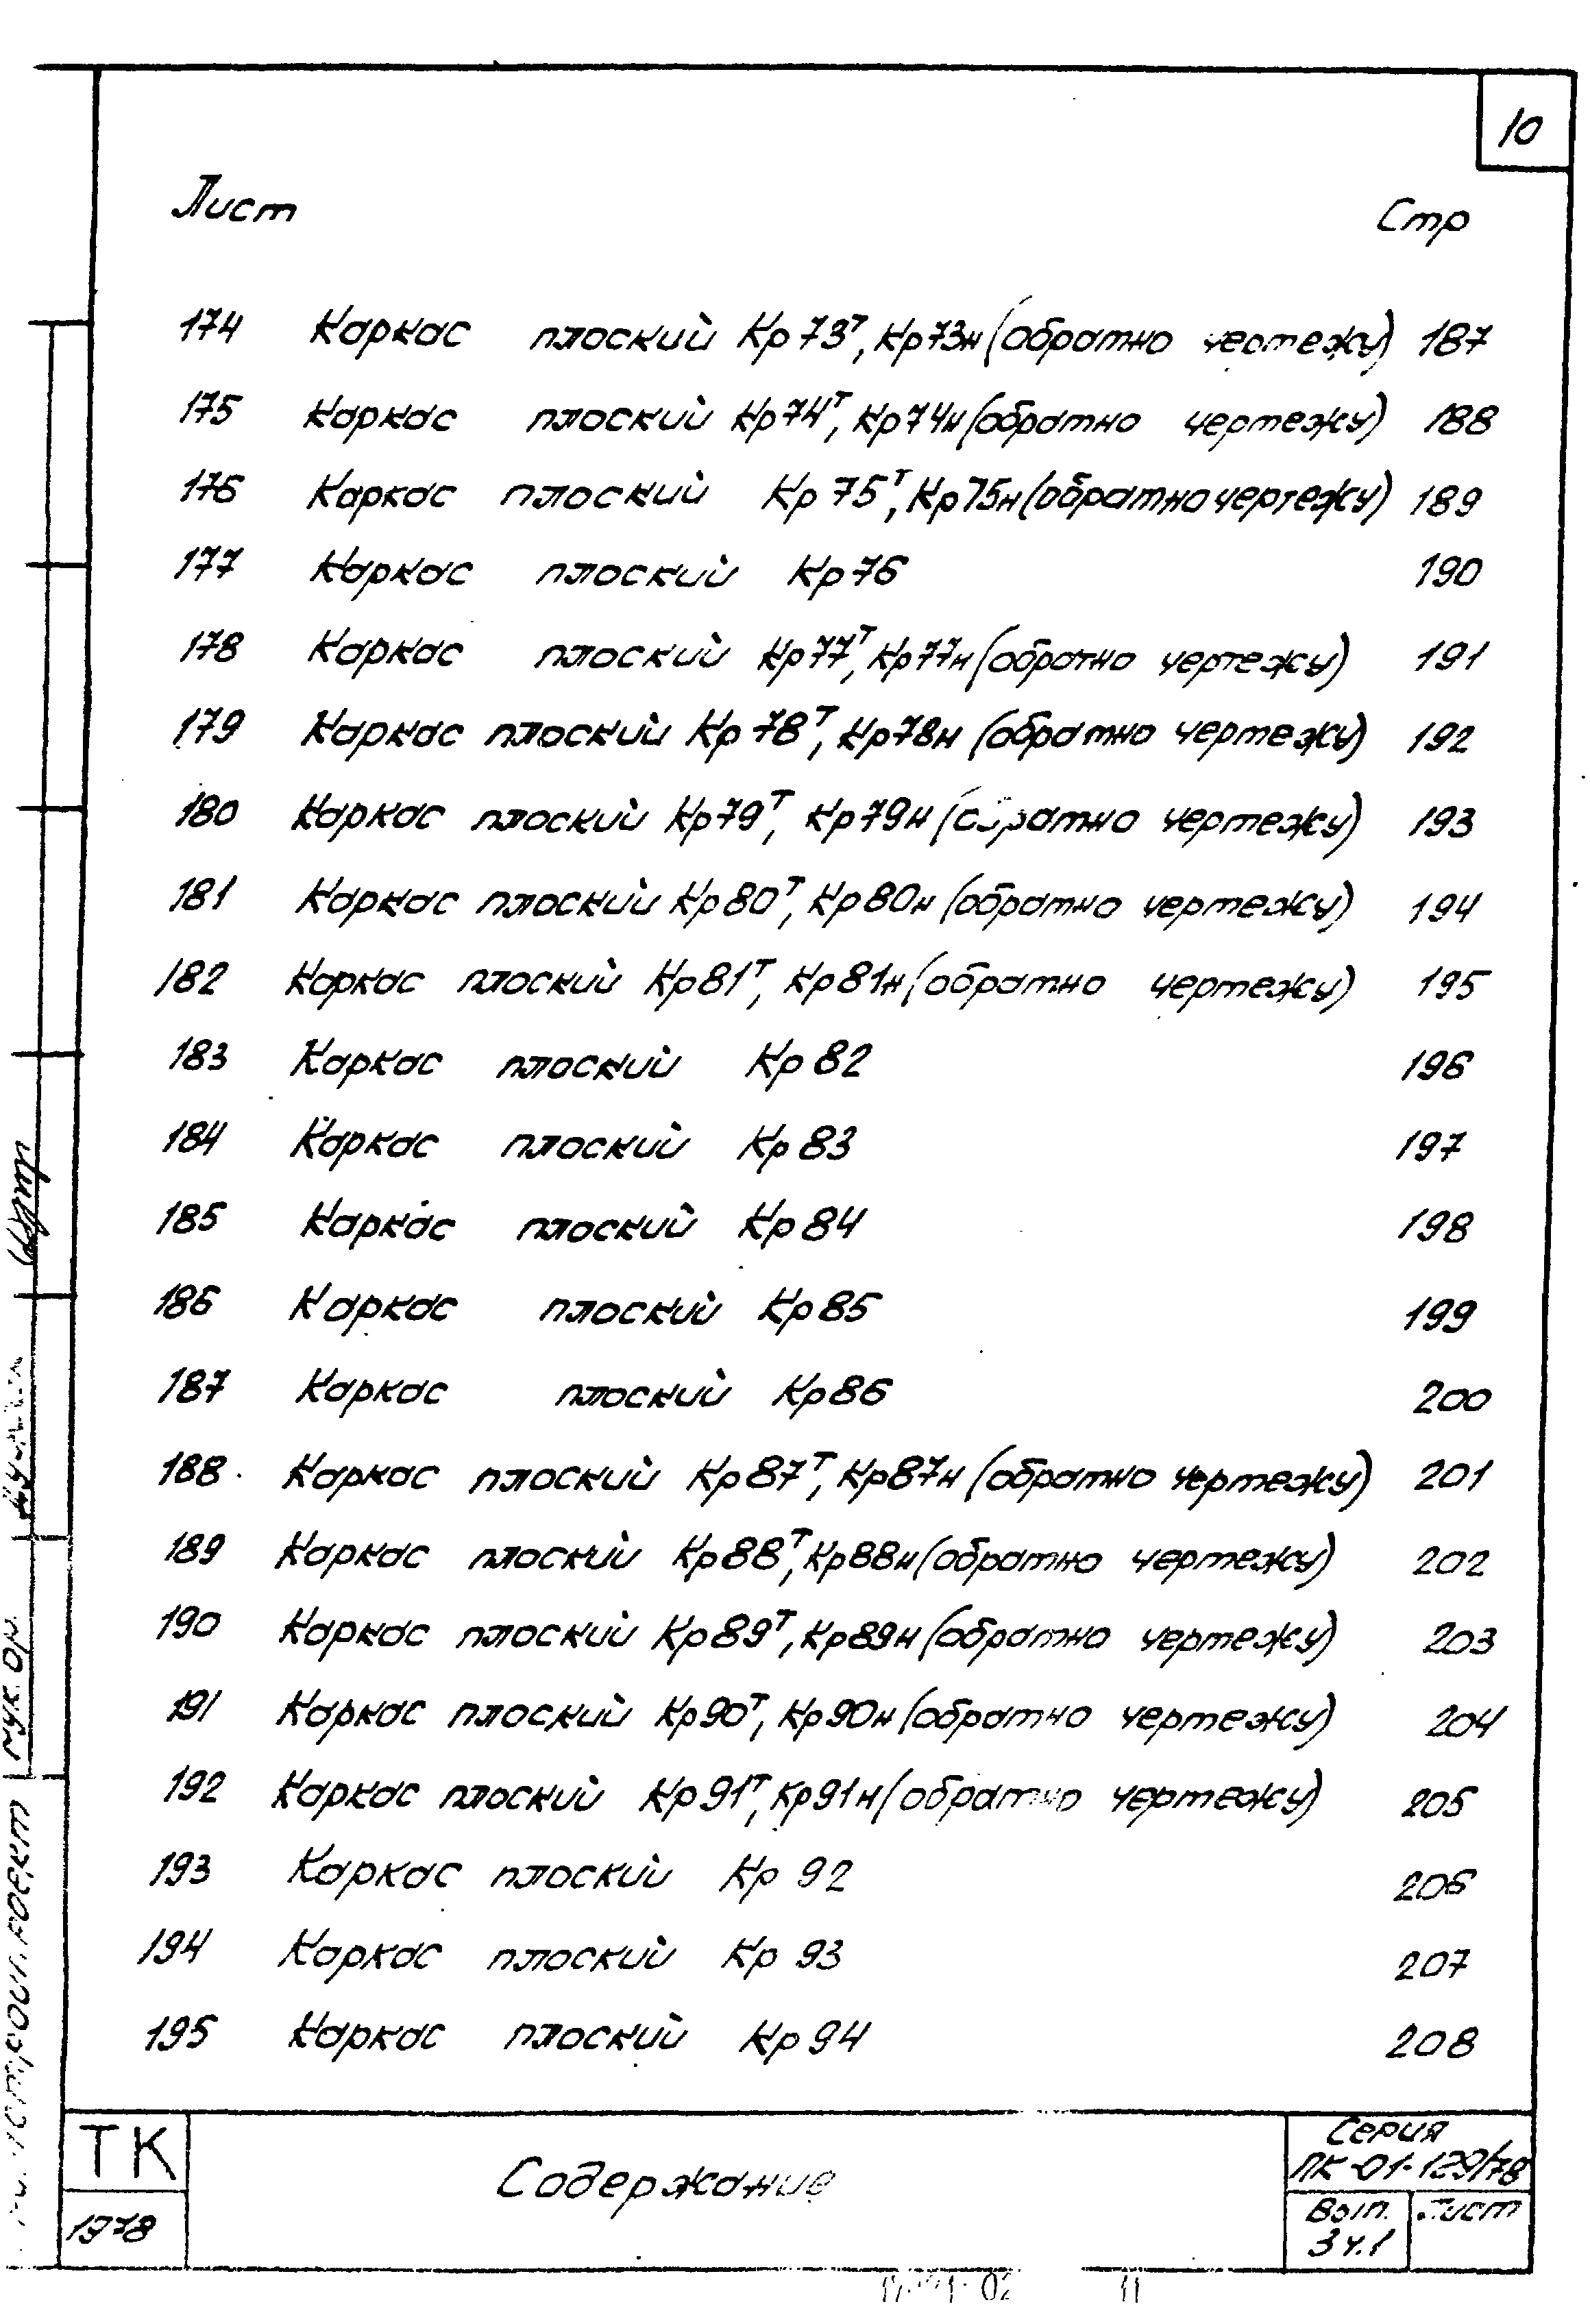 10
Лист Стр
174 Каркас плоский Кр73т, Кр73н (обратно чертежу) 187
175 Каркас плоский Кр74т, Кр74н (обратно чертежу) 188
176 Каркас плоский Кр75т, Кр75н (обратно чертежу) 189
177 Каркас плоский Кр76 190
178 Каркас плоский Кр77т, Кр77н (обратно чертежу) 191
179 Каркас плоский Кр78т, Кр78н (обратно чертежу) 192
180 Каркас плоский Кр79т, Кр79н (обратно чертежу) 193
181 Каркас плоский Кр80т, Кр80н (обратно чертежу) 194
182 Каркас плоский Кр81т, Кр81н (обратно чертежу) 195
183 Каркас плоский Кр82 196
184 Каркас плоский Кр83 197
185 Каркас плоский Кр84 198
186 Каркас плоский Кр85 199
187 Каркас плоский Кр86 200
188 Каркас плоский Кр87т, Кр87н (обратно чертежу) 201
189 Каркас плоский Кр88т, Кр88н (обратно чертежу) 202
190 Каркас плоский Кр89т, Кр89н (обратно чертежу) 203
191 Каркас плоский Кр90т, Кр90н (обратно чертежу) 204
192 Каркас плоский Кр91т, Кр91н (обратно чертежу) 205
193 Каркас плоский Кр 92 206
194 Каркас плоский Кр 93 207
195 Каркас плоский Кр94 208
ТК
1978
Содержание
Серия
ПК-01-129/78
Вып. Лист
3 ч.1
02 11